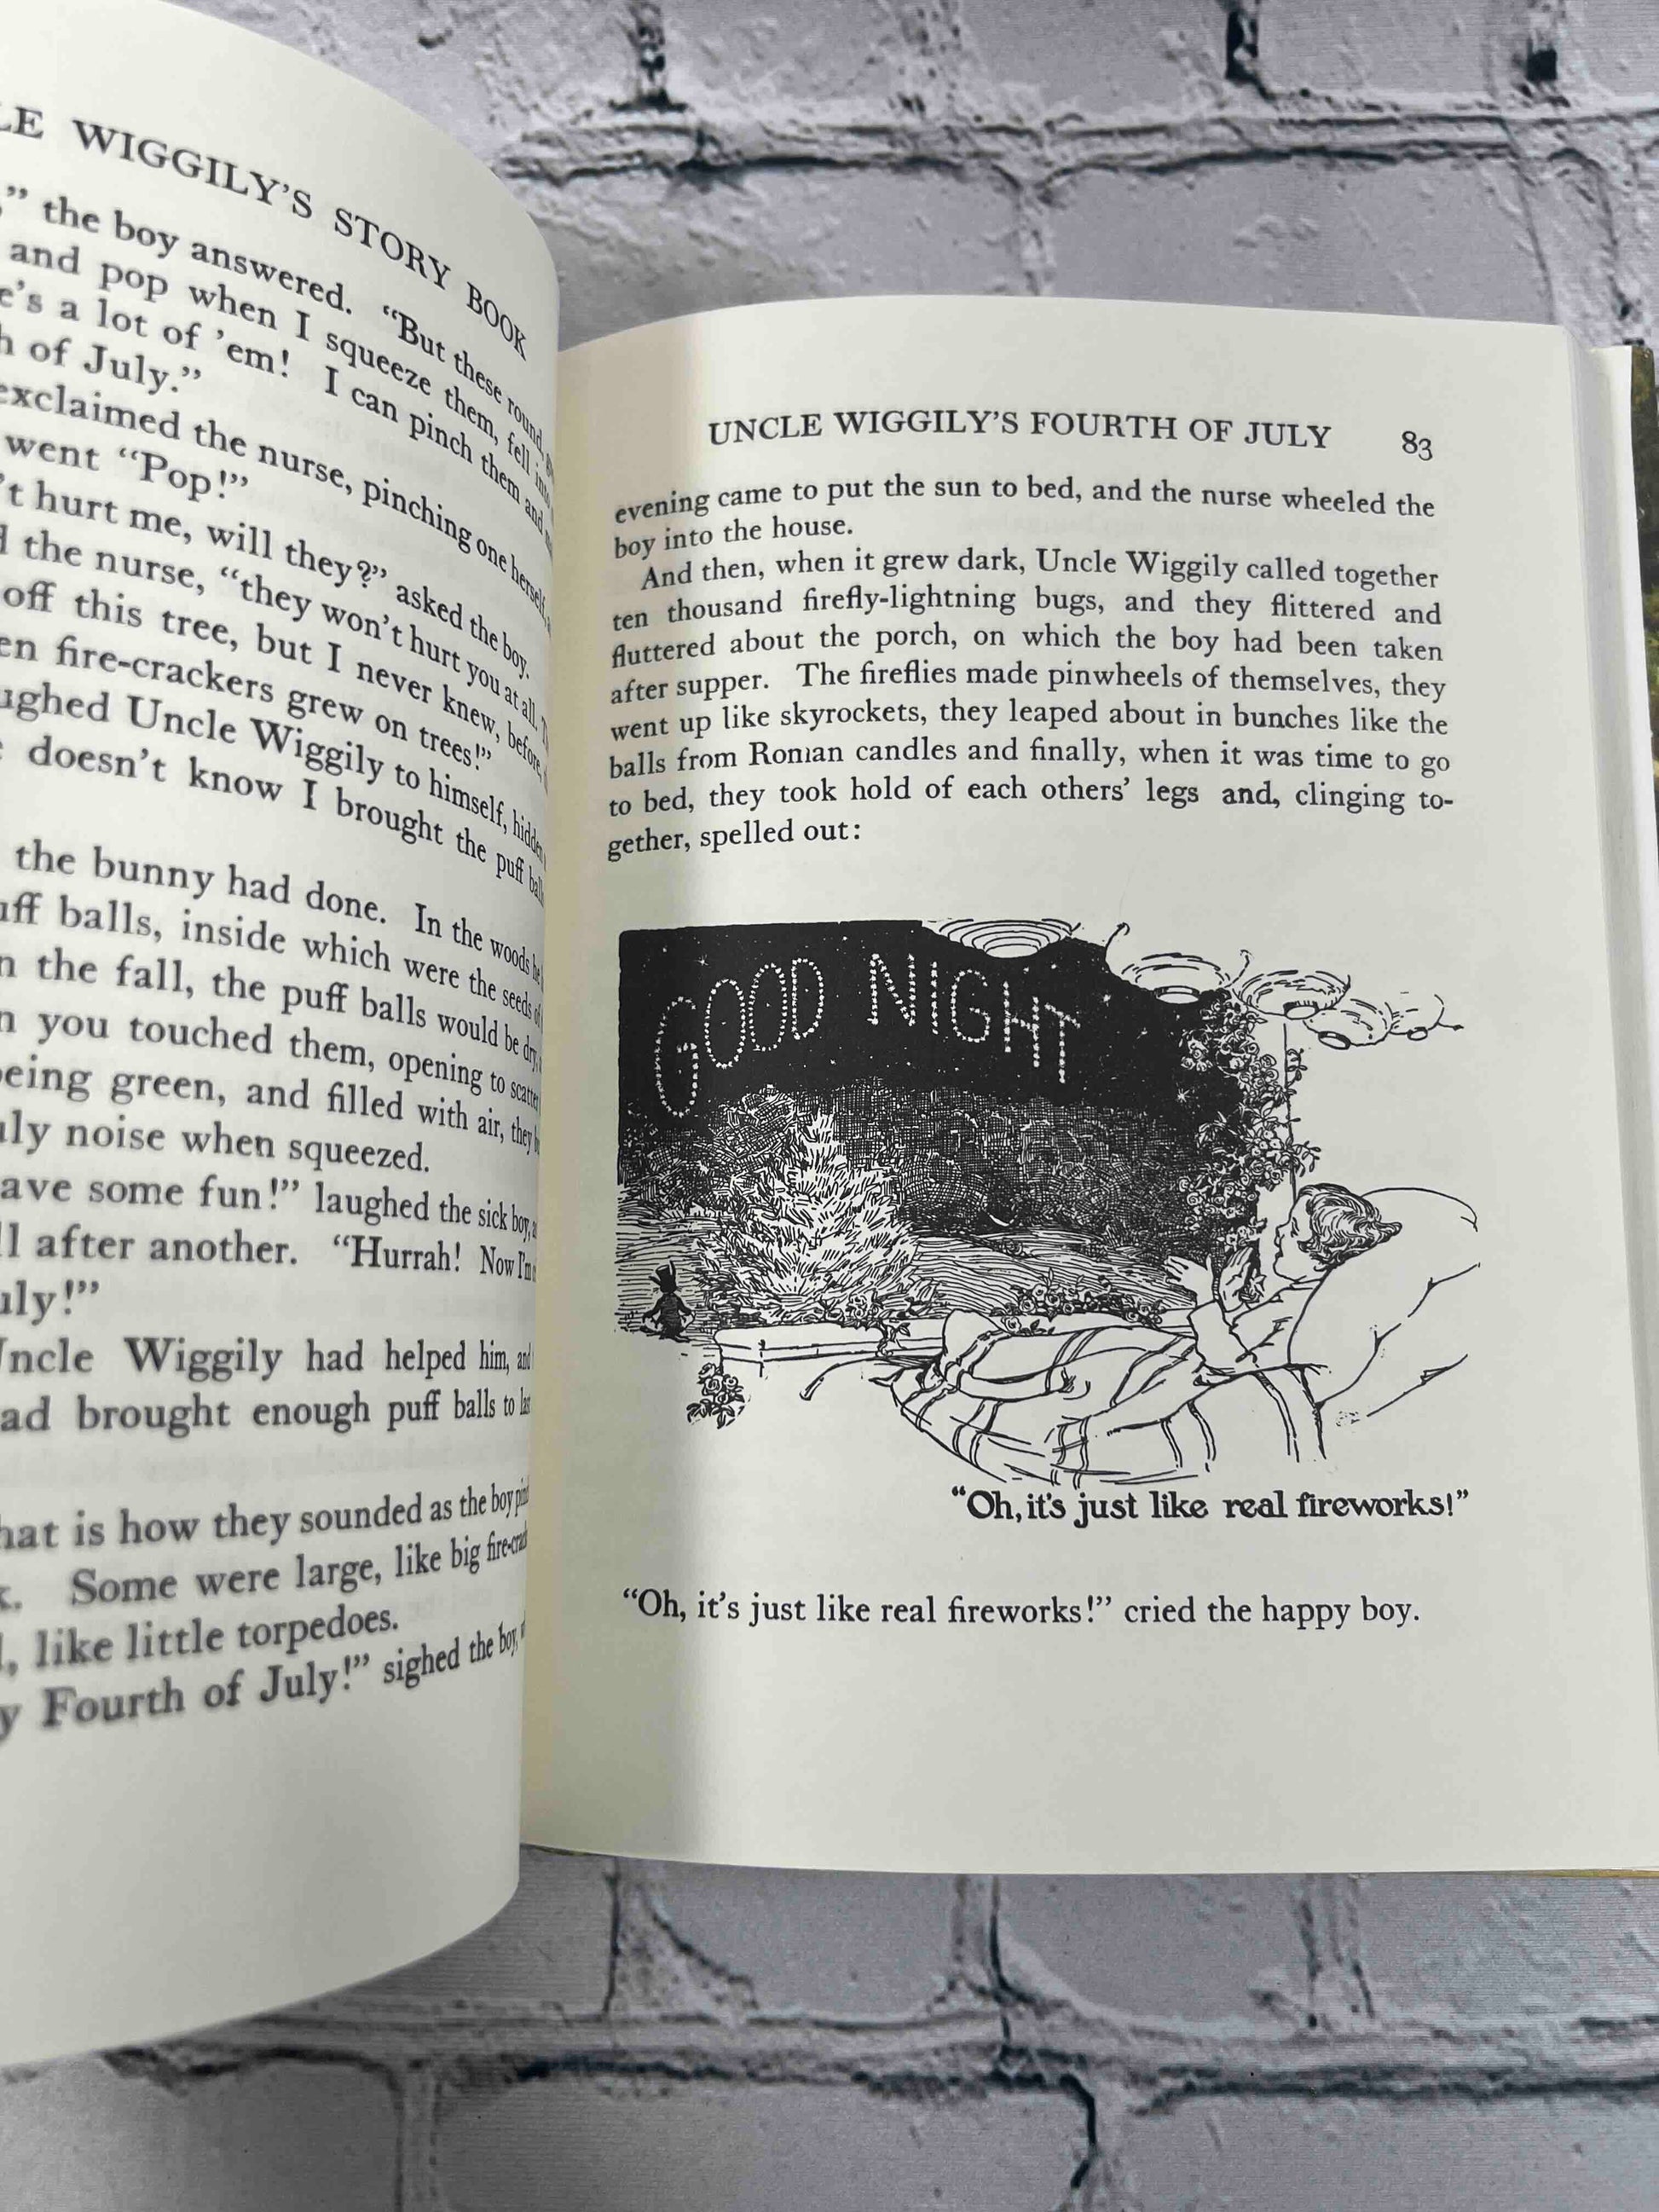 LE WIGGILY'S STORY BOOK
,” the boy answered. “But these round,
and pop when I squeeze them, fell into
e's a lot of 'em! I can pinch them and
h of July.”
exclaimed the nurse, pinching one herself,
went “Pop!”
't hurt me, will they?” asked the boy.
d the nurse, “they won't hurt you at all.
off this tree, but I never knew, before,
en fire-crackers grew on trees!”
ughed Uncle Wiggily to himself, hidden
doesn't know I brought the puff balls
the bunny had done. In the woods he
uff balls, inside which were the seeds of
n the fall, the puff balls would be dry,
n you touched them, opening to scatter
being green, and filled with air, they
uly noise when squeezed.
ave some fun!” laughed the sick boy,
ll after another. “Hurrah! Now I'm
uly!”
Uncle Wiggily had helped him, and
ad brought enough puff balls to last
hat is how they sounded as the boy
k. Some were large, like big fire-crack
l, like little torpedoes.
y Fourth of July!” sighed the boy,
UNCLE WIGGILY'S FOURTH OF JULY 83
evening came to put the sun to bed, and the nurse wheeled the
boy into the house.
And then, when it grew dark, Uncle Wiggily called together
ten thousand firefly-lightning bugs, and they flittered and
fluttered about the porch, on which the boy had been taken
after supper. The fireflies made pinwheels of themselves, they
went up like skyrockets, they leaped about in bunches like the
balls from Roman candles and finally, when it was time to go
to bed, they took hold of each others' legs and, clinging to-
gether, spelled out:
GOOD NIGHT
“Oh, it's just like real fireworks!”
“Oh, it's just like real fireworks!” cried the happy boy.